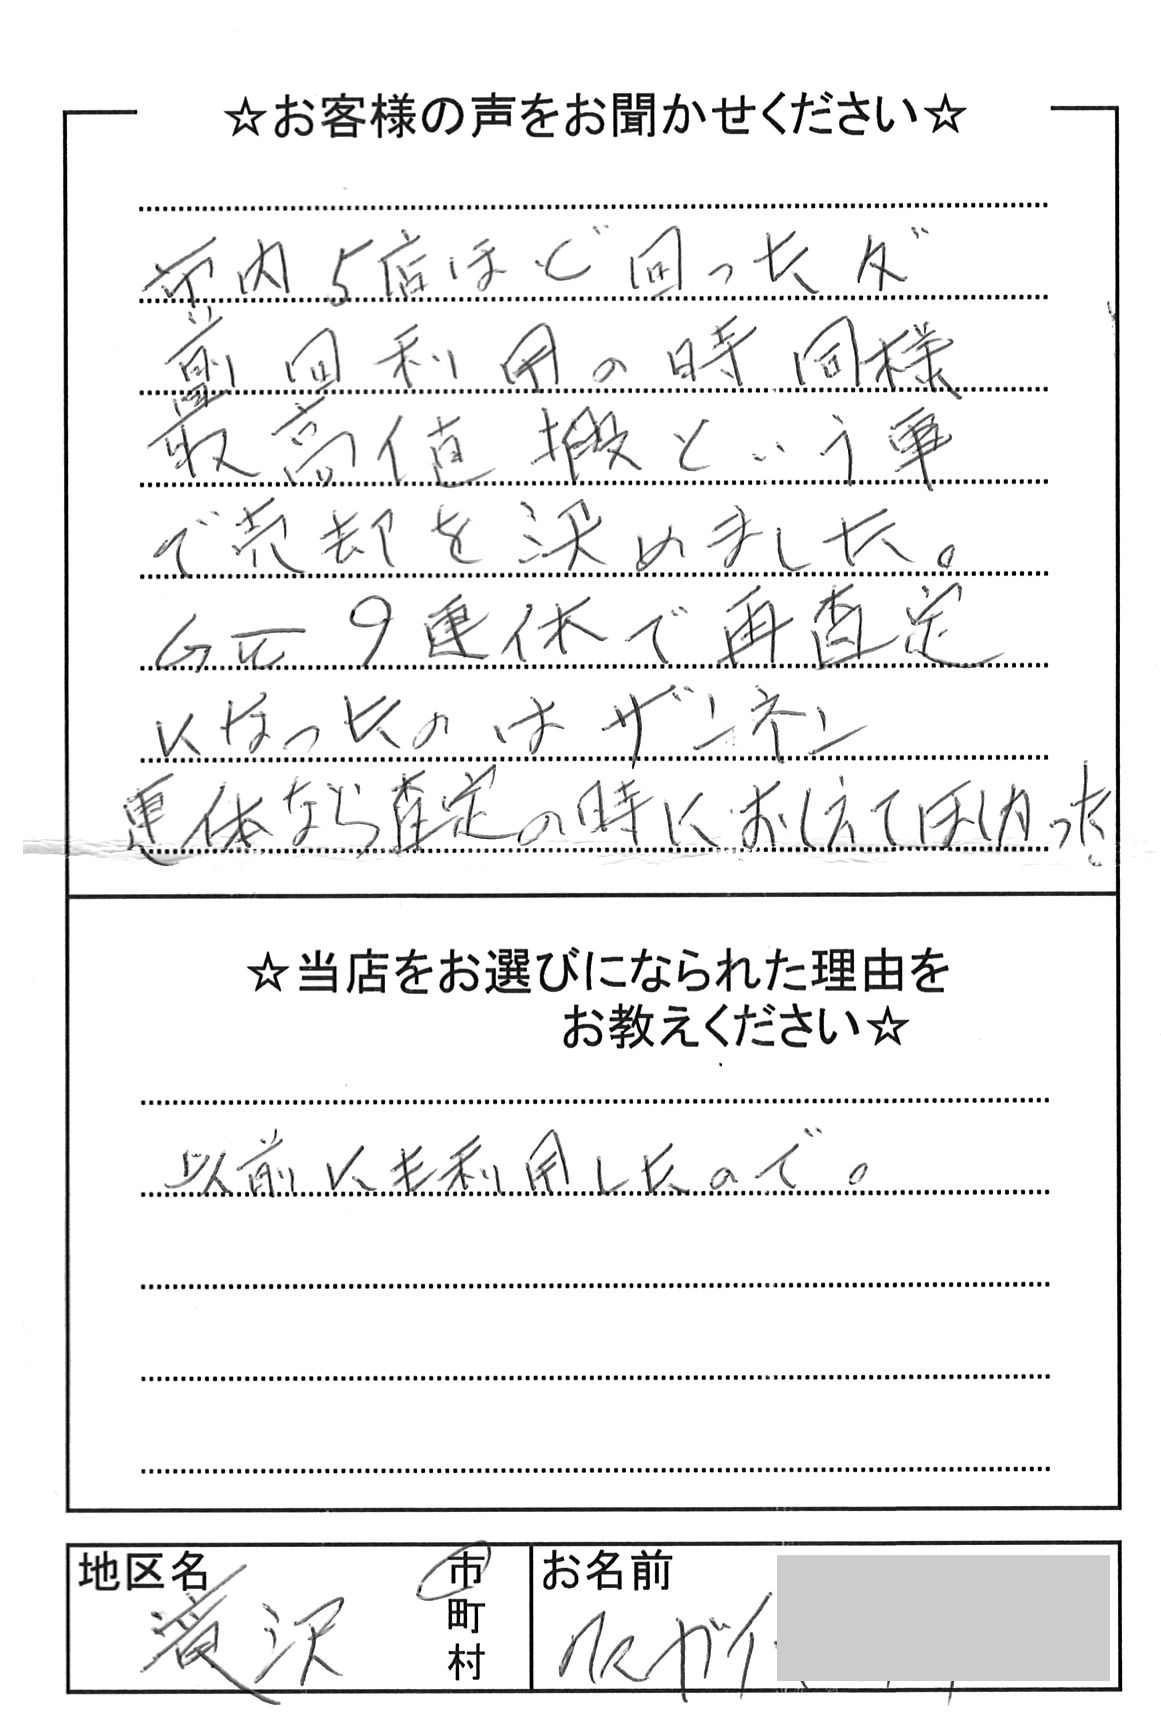 ☆お客様の声をお聞かせください☆
市内5店ほど回ったが
前回利用の時同様
最高値搬という事
で売却を決めました。
GW9連休で再査定
になったのはザンネン
連休なら査定の時におしえてほしかった。
☆当店をお選びになられた理由を
お教えください☆
以前にも利用したので。
地区名
滝沢
市
町
村
お名前